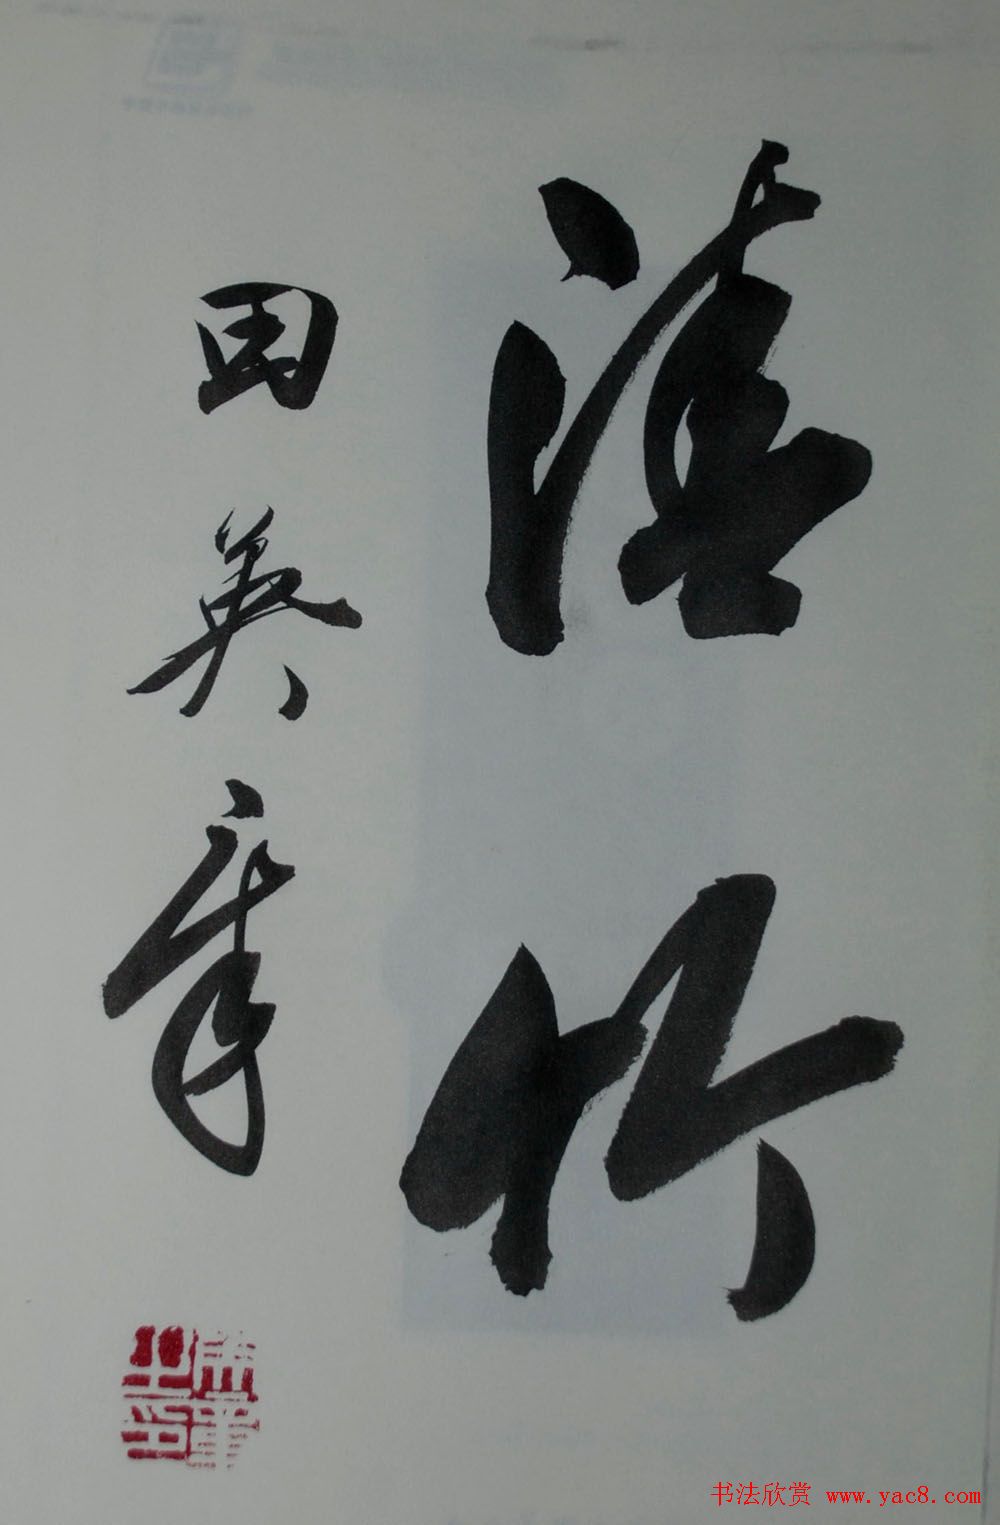 清竹
田英章
英章之印
书法欣赏 www.yac8.com